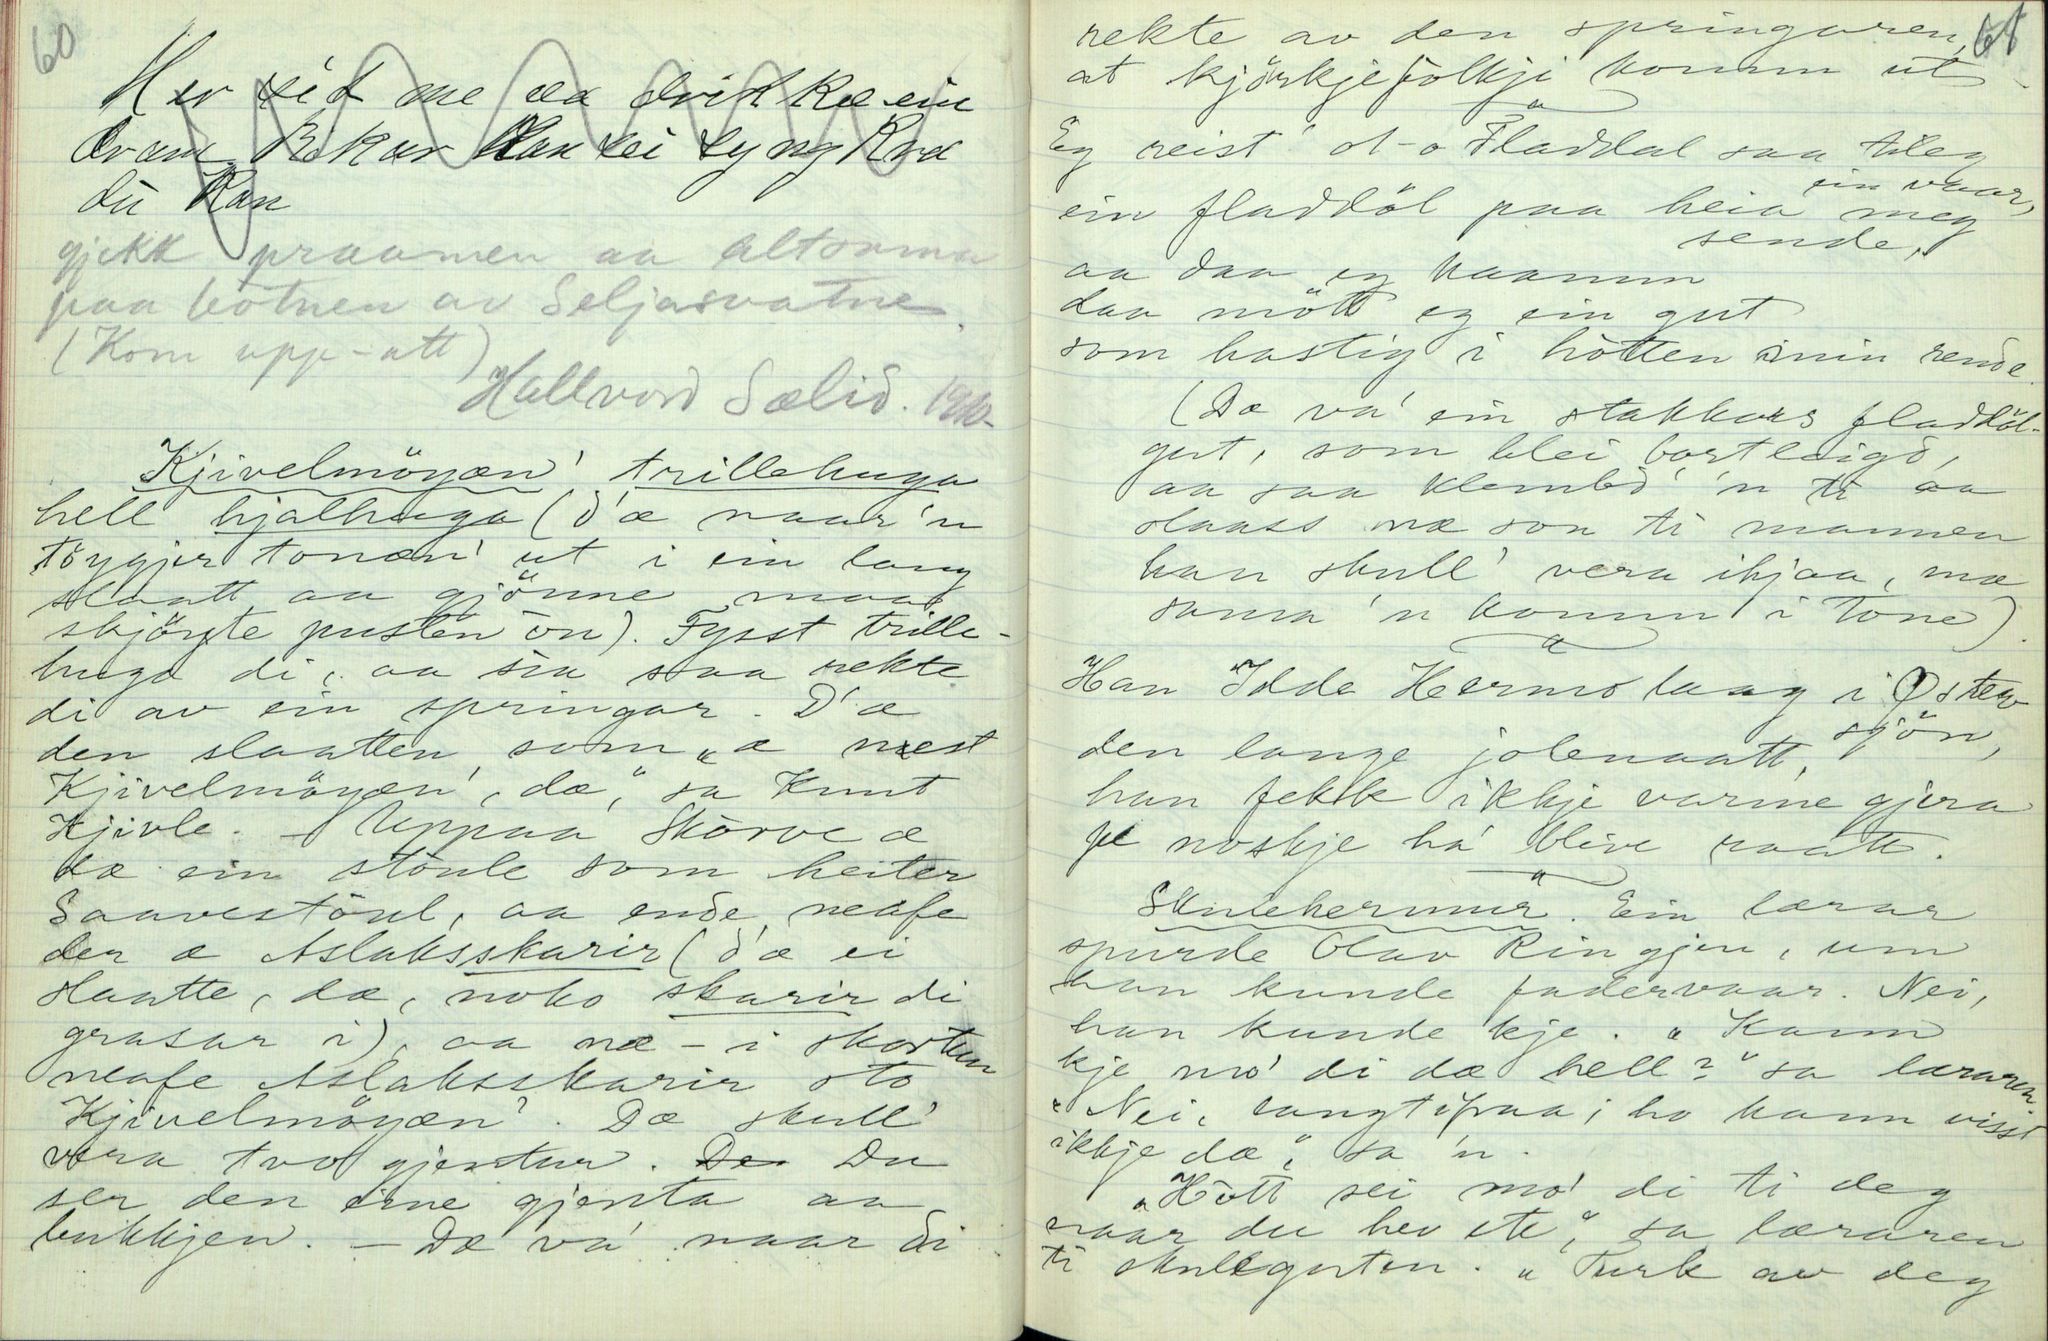 60
Her sit me aa drikke ein
dram Rikar Han ei syng Kva
du Kan
gjekk praamen aa altsama
paa bòtnen av Seljasvatne.
(Kom upp-att)
Hallvord Sælid. 1910.
Kjivelmöyæn' trillehuga
hell hjalhuga (d'æ naar 'n
töygjer tonæn' ut i ein lang
slaatt aa gjönne maa
skjöyte pusten òn). Fysst trille-
huga di, aa sia saa rekte
di av ein springar. D'æ
den slaatten, som „æ mest
Kjivelmöyæn', dæ", sa Knut
Kjivle. – Uppaa Skòrve æ
dæ ein stöule som heiter
Saavestöul, aa ende neafe
der æ Aslaksskarir (d'æ ei
slaatte, dæ, noko skarir di
grasar i), aa næ-i skorten
neafe Aslaksskarir sto
Kjivelmöyæn'. Dæ skull'
vera tvo gjentur. De Du
ser den eine gjenta aa
bukkjen. – Dæ va' naar di
61
rekte av den springaren,
at kjörkjefolkji komm ut.
"
Eg reist' ot-o Fladdal saa tileg
ein vaar,
ein fladdöl paa heia meg
sende,
aa daa eg kaamm
daa mött eg ein gut
som hastig i hòtten min rende.
(Dæ va' ein stakkars fladdöl-
gut, som blei bortleigd,
aa saa klembd' 'n ti aa
slaass mæ son ti mannen
han skull' vera ihjaa, mæ
sama 'n komm i tone).
"
Han Idde Hermo laag i Østen
sjön,
den lange jolenaatt,
han fekk ikkje varme gjera
fe noskje ha' blive raatt.
"
Skulehermur. Ein lærar
spurde Olav Ringjen, um
han kunde fadervaar. Nei,
han kunde kje. „Kann
kje mo' di dæ hell?" sa læraren.
„Nei, langtifraa; ho kann visst
ikkje dæ", sa 'n.
„Hòtt sei mo' di ti deg
naar du hev ete", sa læraren
ti skuleguten. „Turk av deg